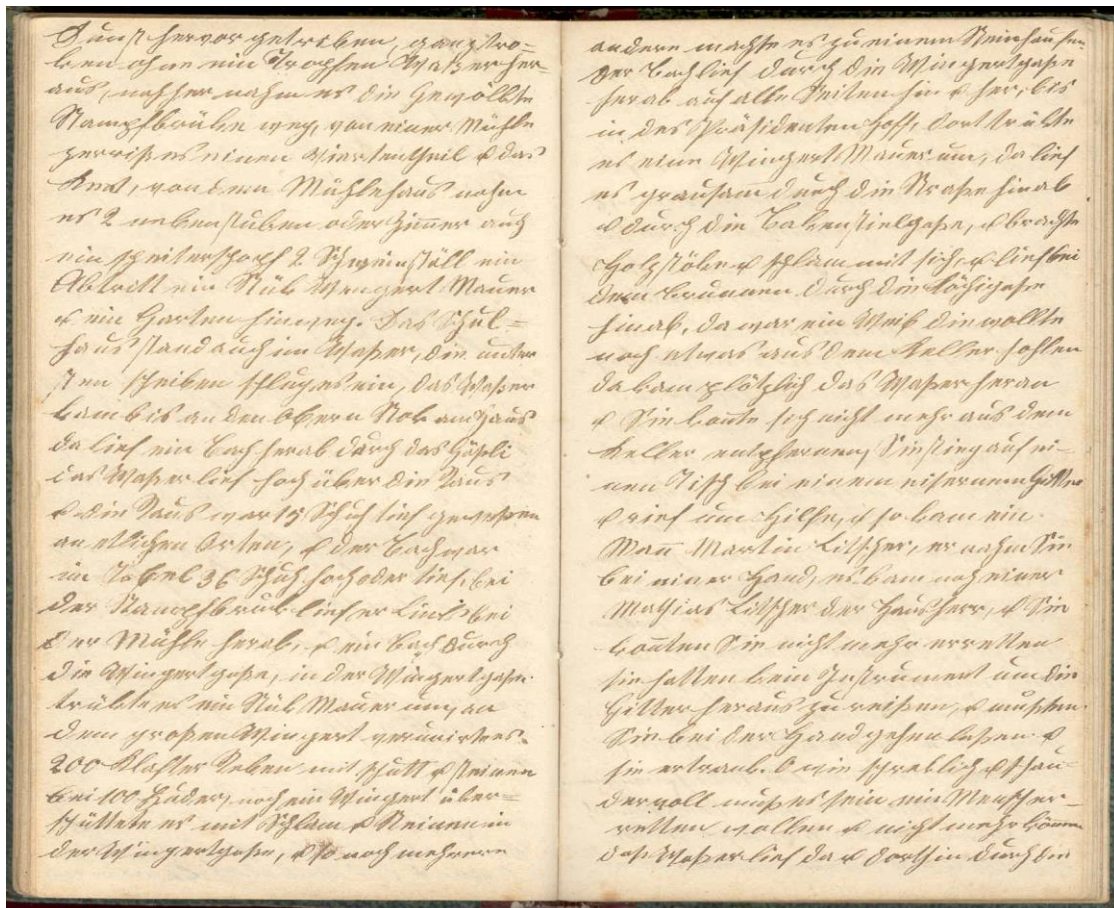 Dunst hervor getrieben, ganz tro-
ken ohne ein Tropfen Waßer her-
aus, nachher nahm es die Gewölbte
Stampfbrüke weg, von einer Mühle
zerriß es einen Viertentheil & das
Rad, von dem Mühlehaus nahm
es 2 nebenstuben oder Zimmer auch
ein scheiterschopf 2 Schweinställ ein
Abtritt ein Stük Wingert Mauer
& ein Garten hinweg. Das Schul-
haus stand auch im Waßer, die unter
sten scheiben schlug es ein, das Waßer
kam bis an den Obern Stok am Haus
da lief ein Bach herab durch das Gäßli
das Waßer lief hoch über die
& die war 15 Schuh tief gewesen
an etlichen Orten, & der Bach war
im Tobel 36 Schuh hoch oder tief, bei
der Stampfbruk lief er Links bei
der Mühle herab, & ein Bach durch
die Wingertgaße, in der Wingertgaße
trükte es ein Stük Mauer um, an
dem großen Wingert veruinirte es
200 Klafter Reben mit schutt & steinen
bei 100 Fuder, noch ein Wingert über-
schüttete es mit Schlam & Steinen in
der Wingertgaße, & so noch mehrere
andere machte es zu einem Steinhaufen
Der Bach lief durch die Wingertgaße
herab auf alle Seiten hin & her, bis
in des Präsidenten Hoff, dort trükte
es eine Wingert Mauer um, da lief
es grausam durch die Straße hinab
& durch die , & brachte
Holzstöke & schlam mit sich, & lief bei
dem Brunnen durch die
hinab, da war ein Weib die wollte
noch etwas aus dem Keller hohlen
da kam plötzlich das Waßer heran
& Sie konte sich nicht mehr aus dem
Keller entfernen, Sie stieg auf ei-
nen Tisch bei einem eisernem Gitter
& rief um Hilfe, & so kam ein
Mann Martin Litscher, er nahm Sie
bei einer Hand, es kam noch einer
Mathias Litscher der Hausherr, & Sie
konten Sie nicht mehr erretten
sie hatten kein Instrument um die
Gitter heraus zu reißen, & mußten
Sie bei der Hand gehen laßen &
sie ertrank. O wie schreklich & schau-
dervoll muß es sein ein Mensch er-
retten wollen & nicht mehr können
das Waßer lief da & dorthin durch die